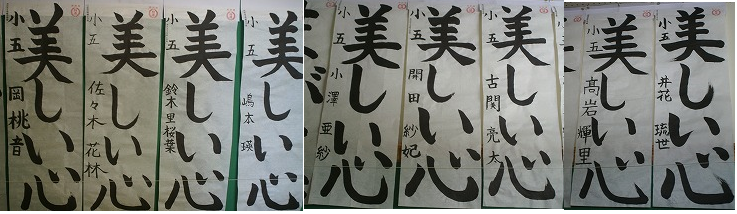 美しい心
小五
岡桃音
美しい心
小五
佐々木 花林
美しい心
小五
鈴木里桜葉
美しい心
小五
嶋本 瑛
美しい心
小五
小澤 亜紗
美しい心
小五
開田 紗妃
美しい心
小五
古関 亮太
美しい心
小五
高岩 輝里
美しい心
小五
井花 琉世